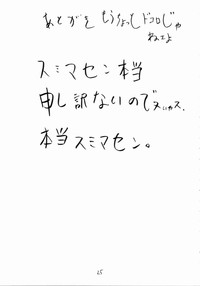 あとがきもうちょっとドコロじゃ
ねェよ
スミマセン本当
申し訳ないのでヌ
本当スミマセン。
25